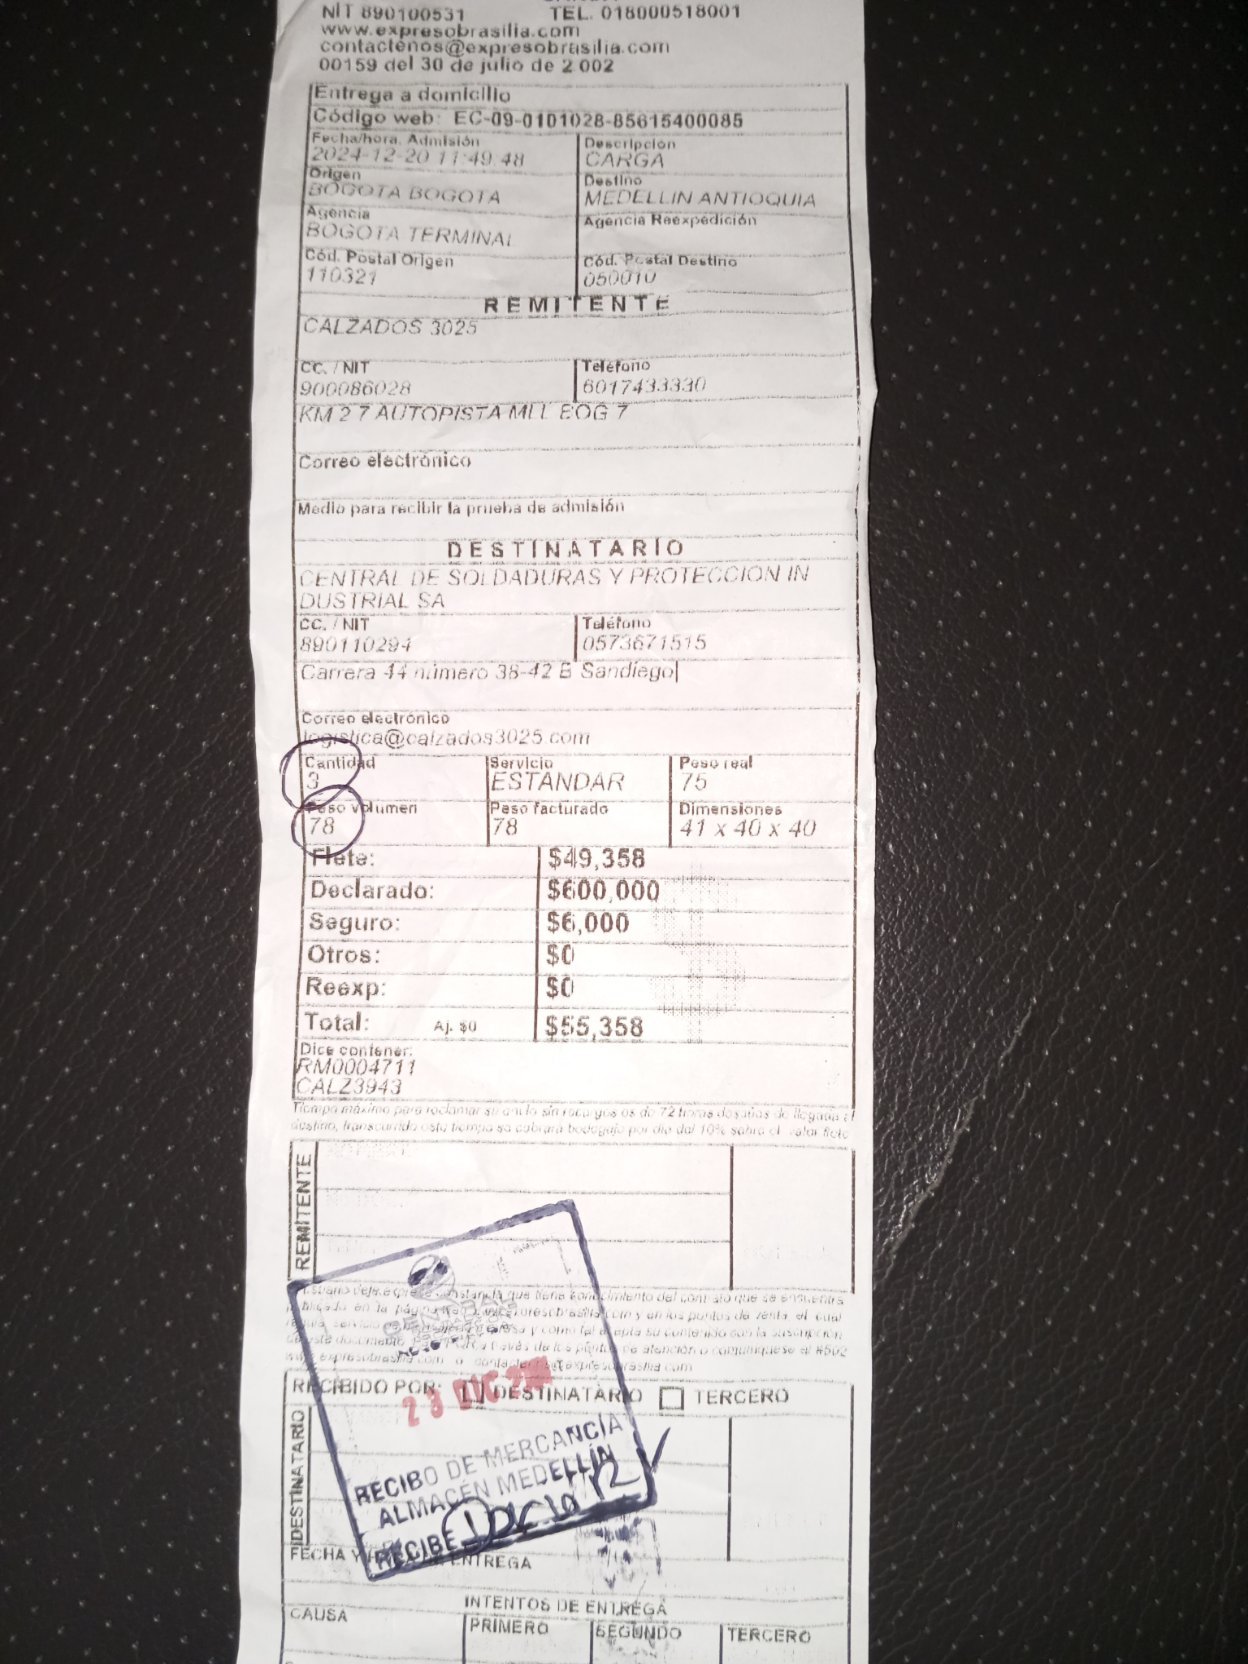 NIT 890100531 TEL. 018000518001
www.expresobrasilia.com
contactenos@expresobrasilia.com
00159 del 30 de julio de 2 002
Entrega a domicilio
Código web: EC-09-0101028-85615400085
Fecha/hora. Admisión Descripción
2024-12-20 11:49:48 CARGA
Origen Destino
BOGOTA BOGOTA MEDELLIN ANTIOQUIA
Agencia Agencia Reexpedición
BOGOTA TERMINAL
Cód. Postal Origen Cód. Postal Destino
110321 050010
REMITENTE
CALZADOS 3025
CC. / NIT Teléfono
900086028 6017433330
KM 2 7 AUTOPISTA MLL BOG 7
Correo electrónico
Medio para recibir la prueba de admisión
DESTINATARIO
CENTRAL DE SOLDADURAS Y PROTECCION IN
DUSTRIAL SA
CC. / NIT Teléfono
890110294 0573671515
Carrera 44 número 38-42 B Sandiego
Correo electrónico
logistica@calzados3025.com
Cantidad Servicio Peso real
3 ESTANDAR 75
Peso volumen Peso facturado Dimensiones
78 78 41 x 40 x 40
Flete: $49,358
Declarado: $600,000
Seguro: $6,000
Otros: $0
Reexp: $0
Total: Aj. $0 $55,358
Dice contener:
RM0004711
CALZ3943
Tiempo máximo para reclamar su envío sin recargos es de 72 horas después de llegada al
destino, transcurrido este tiempo se cobrará bodegaje por día del 10% sobre el valor flete
REMITENTE
que tiene conocimiento del contrato que se encuentra
en la página y en los puntos de venta el cual
y como tal acepta su contenido con la suscripción
de atención o comuníquese al #502
RECIBIDO POR: DESTINATARIO TERCERO
23 DIC
DESTINATARIO
RECIBO DE MERCANCÍA
ALMACÉN MEDELLÍN
RECIBE
FECHA Y ENTREGA
INTENTOS DE ENTREGA
CAUSA PRIMERO SEGUNDO TERCERO